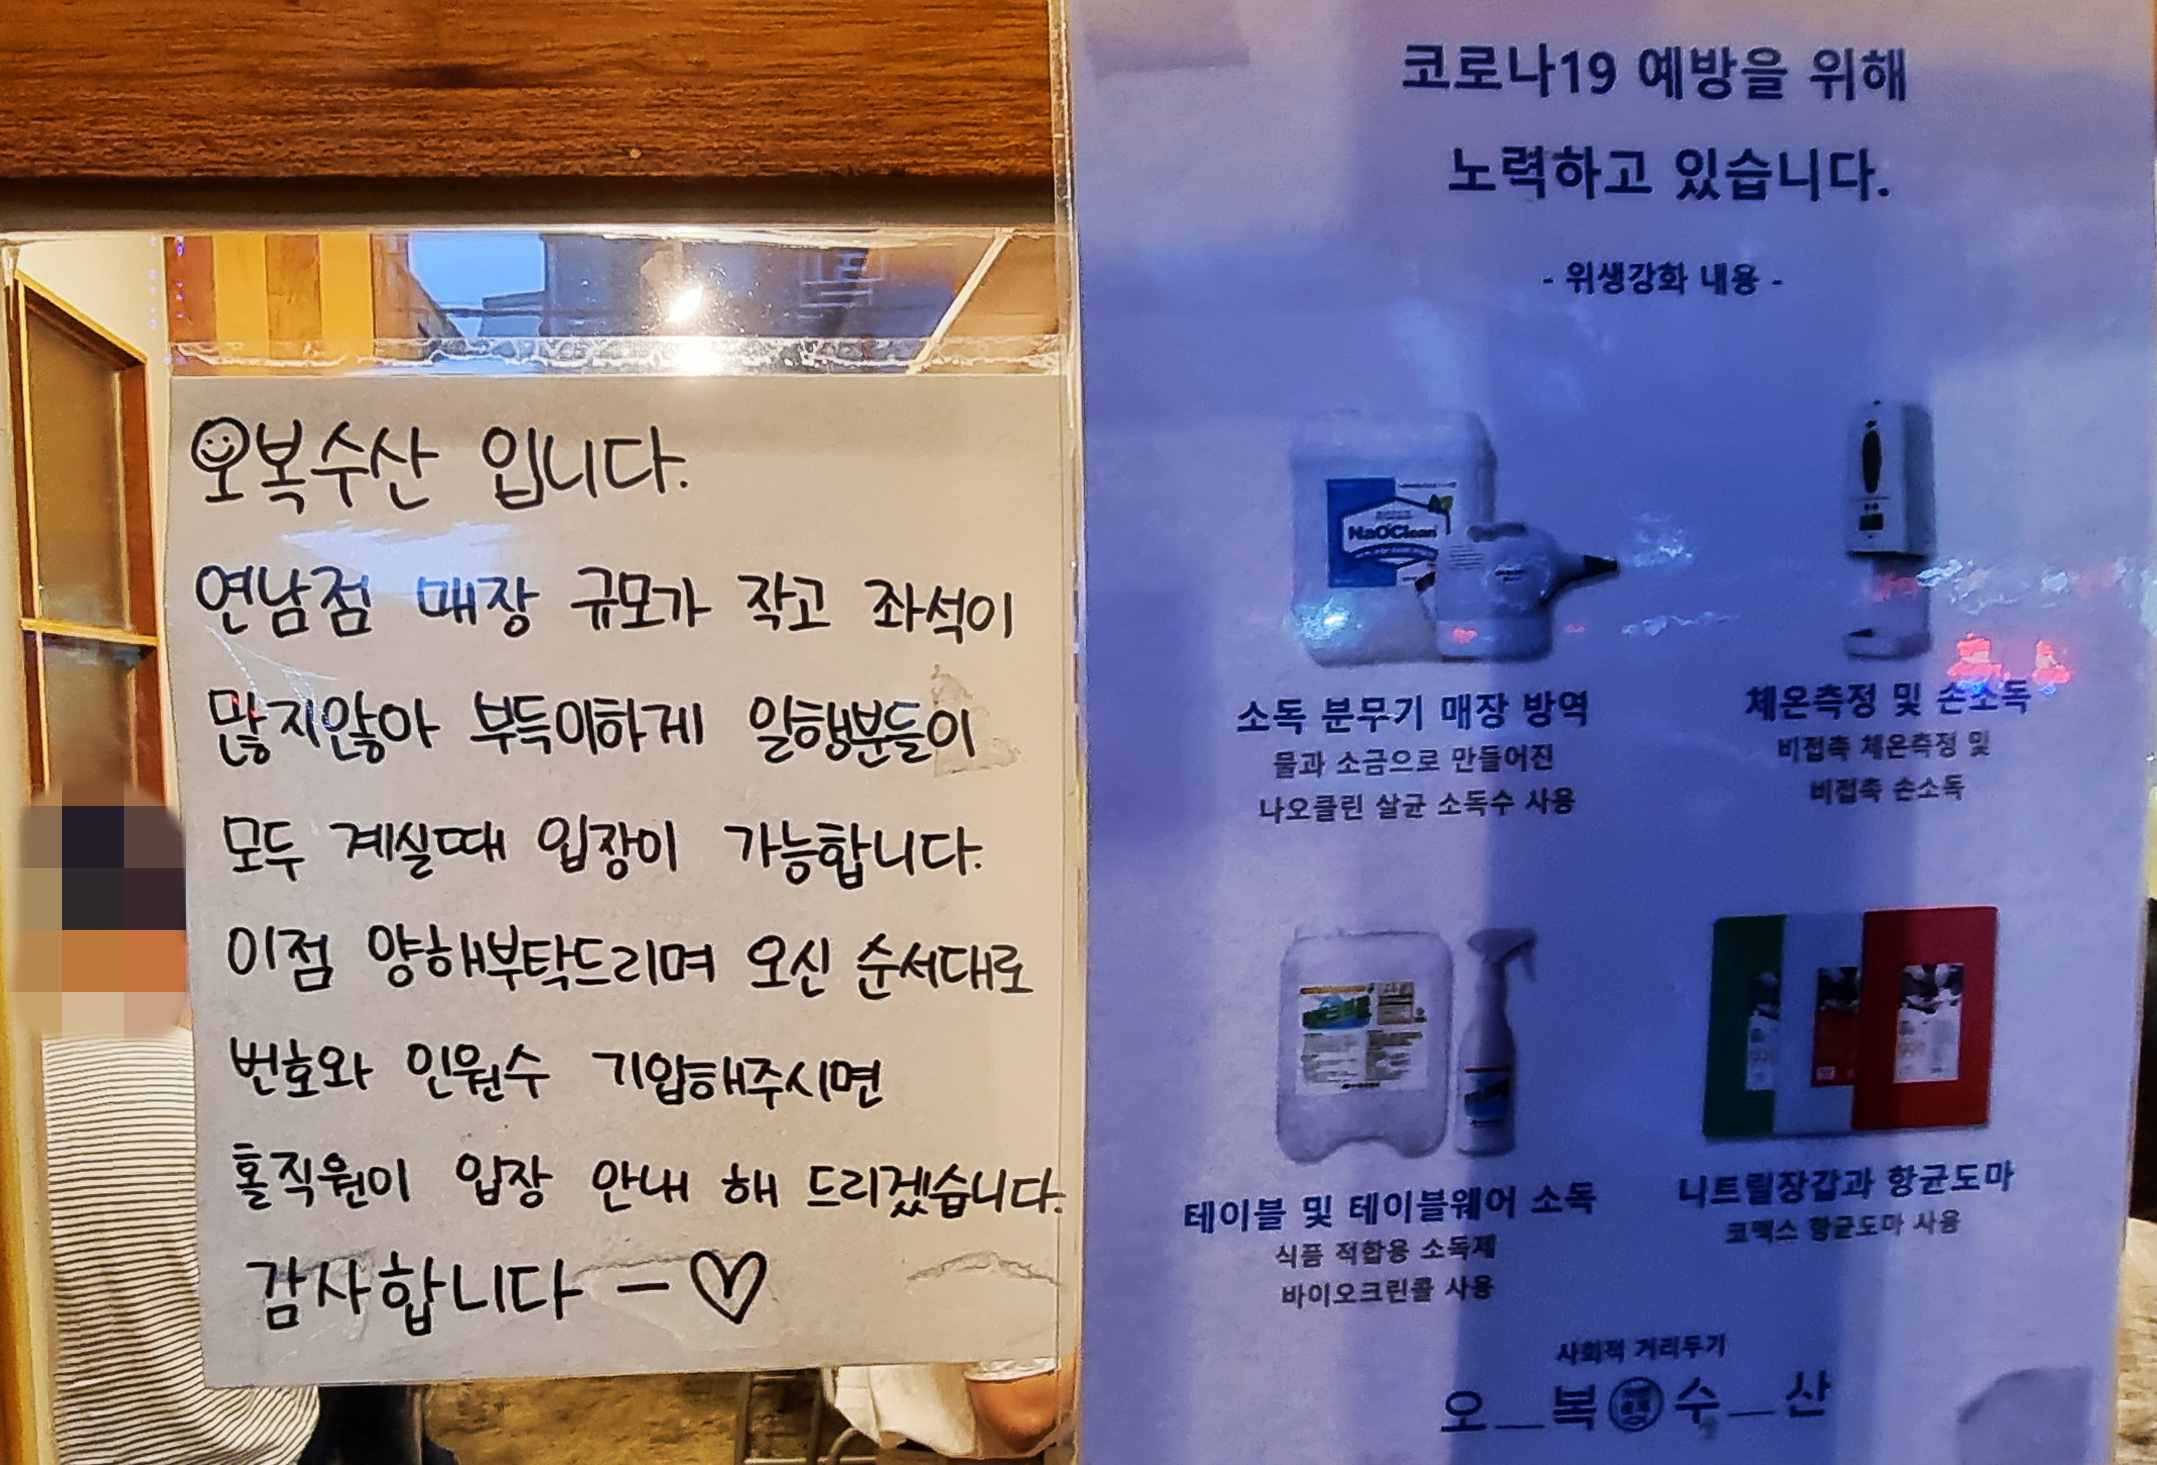 오복수산 입니다.
연남점 매장 규모가 작고 좌석이
많지않아 부득이하게 일행분들이
모두 계실때 입장이 가능합니다.
이점 양해부탁드리며 오신 순서대로
번호와 인원수 기압해주시면
홀직원이 입장 안내 해 드리겠습니다.
감사합니다 -
코로나19 예방을 위해
노력하고 있습니다.
- 위생강화 내용 -
NaOClean
소독 분무기 매장 방역
물과 소금으로 만들어진
나오클린 살균 소독수 사용
체온측정 및 손소독
비접촉 체온측정 및
비접촉 손소독
테이블 및 테이블웨어 소독
식품 적합용 소독제
바이오크린콜 사용
니트릴장갑과 항균도마
코맥스 항균도마 사용
사회적 거리두기
오__복 수__산